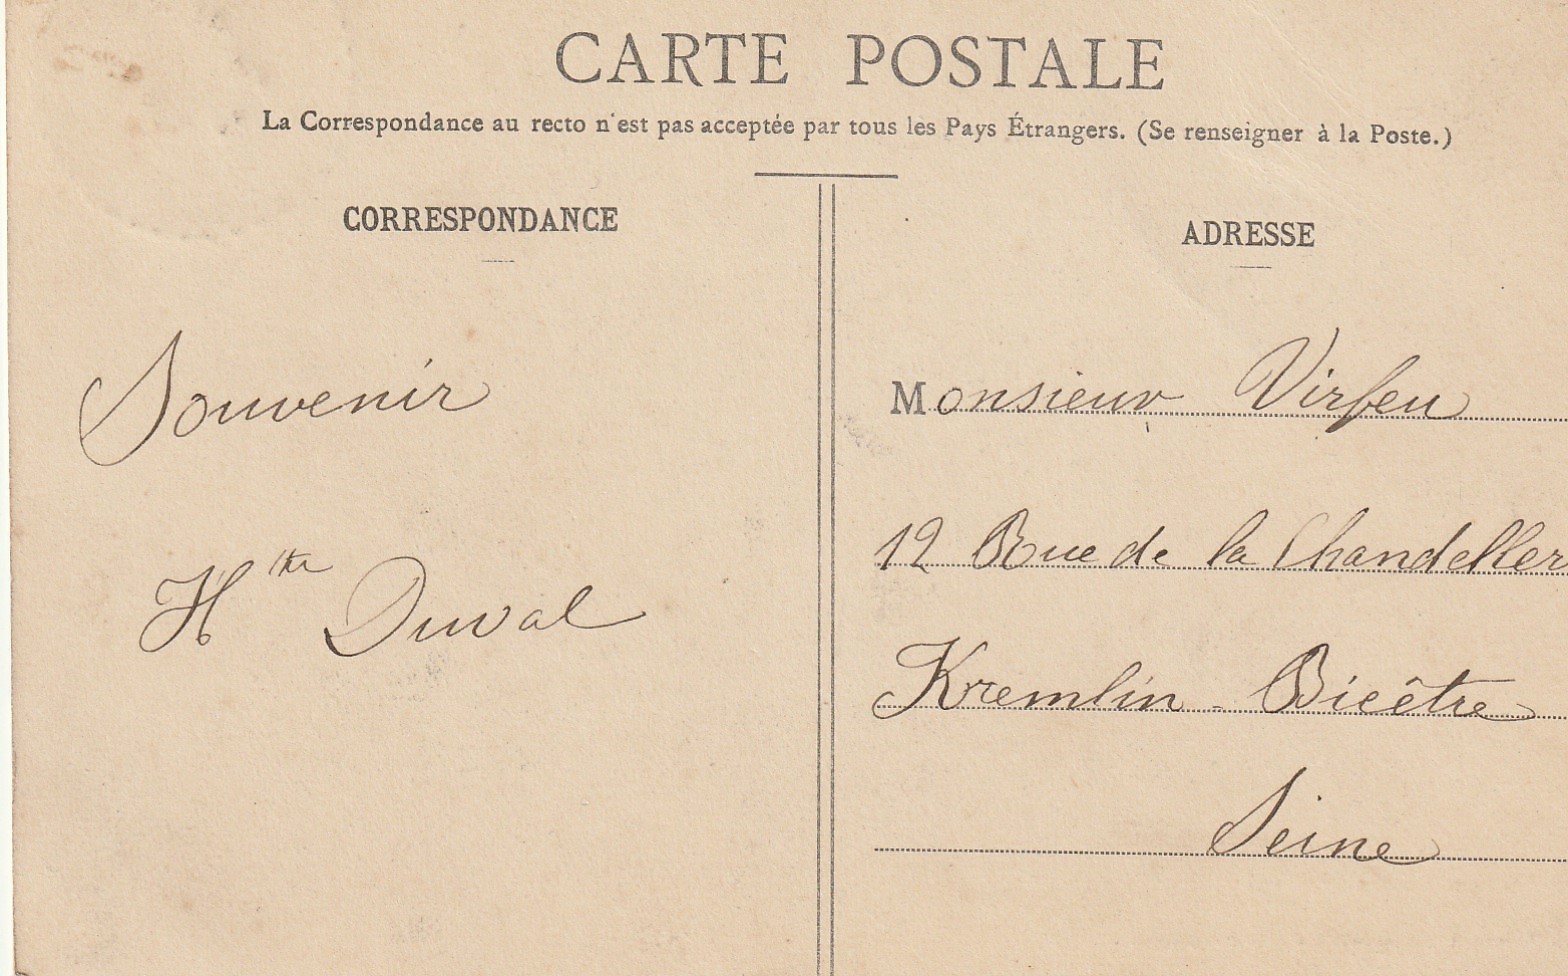 CARTE POSTALE
La Correspondance au recto n'est pas acceptée par tous les Pays Étrangers. (Se renseigner à la Poste.)
CORRESPONDANCE
Souvenir
Duval
ADRESSE
Monsieur Virfeu
12 Rue de la Chandeller
Kremlin-Bicêtre
Seine